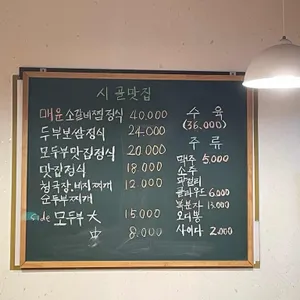 시골맛집
매운소갈비찜정식 40,000
두부보쌈정식 24,000
모두부맛집정식 20,000
맛집정식 18,000
청국장,비지찌개 12,000
순두부찌개
side 모두부 大 15,000
中 8,000
수육
(36,000)
주류
맥주 5,000
소주
막걸리
클라우드 6,000
복분자 13,000
오디뽕
사이다 2,000